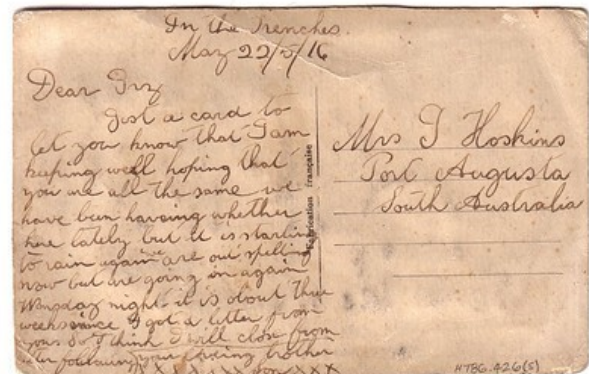 In the Trenches.
May 22/5/16
Dear Irz
Just a card to
let you know that I am
keeping well hoping that
you are all the same we
have been having whether
here lately but it is starting
to rain again we are out spelling
now but are going in again
night it is about three
weeks since I got a letter from
yours so I think I will close from
your loving brother
XXX
Fabrication française
Mrs I Hoskins
Port Augusta
South Australia
HTBG.426(5)